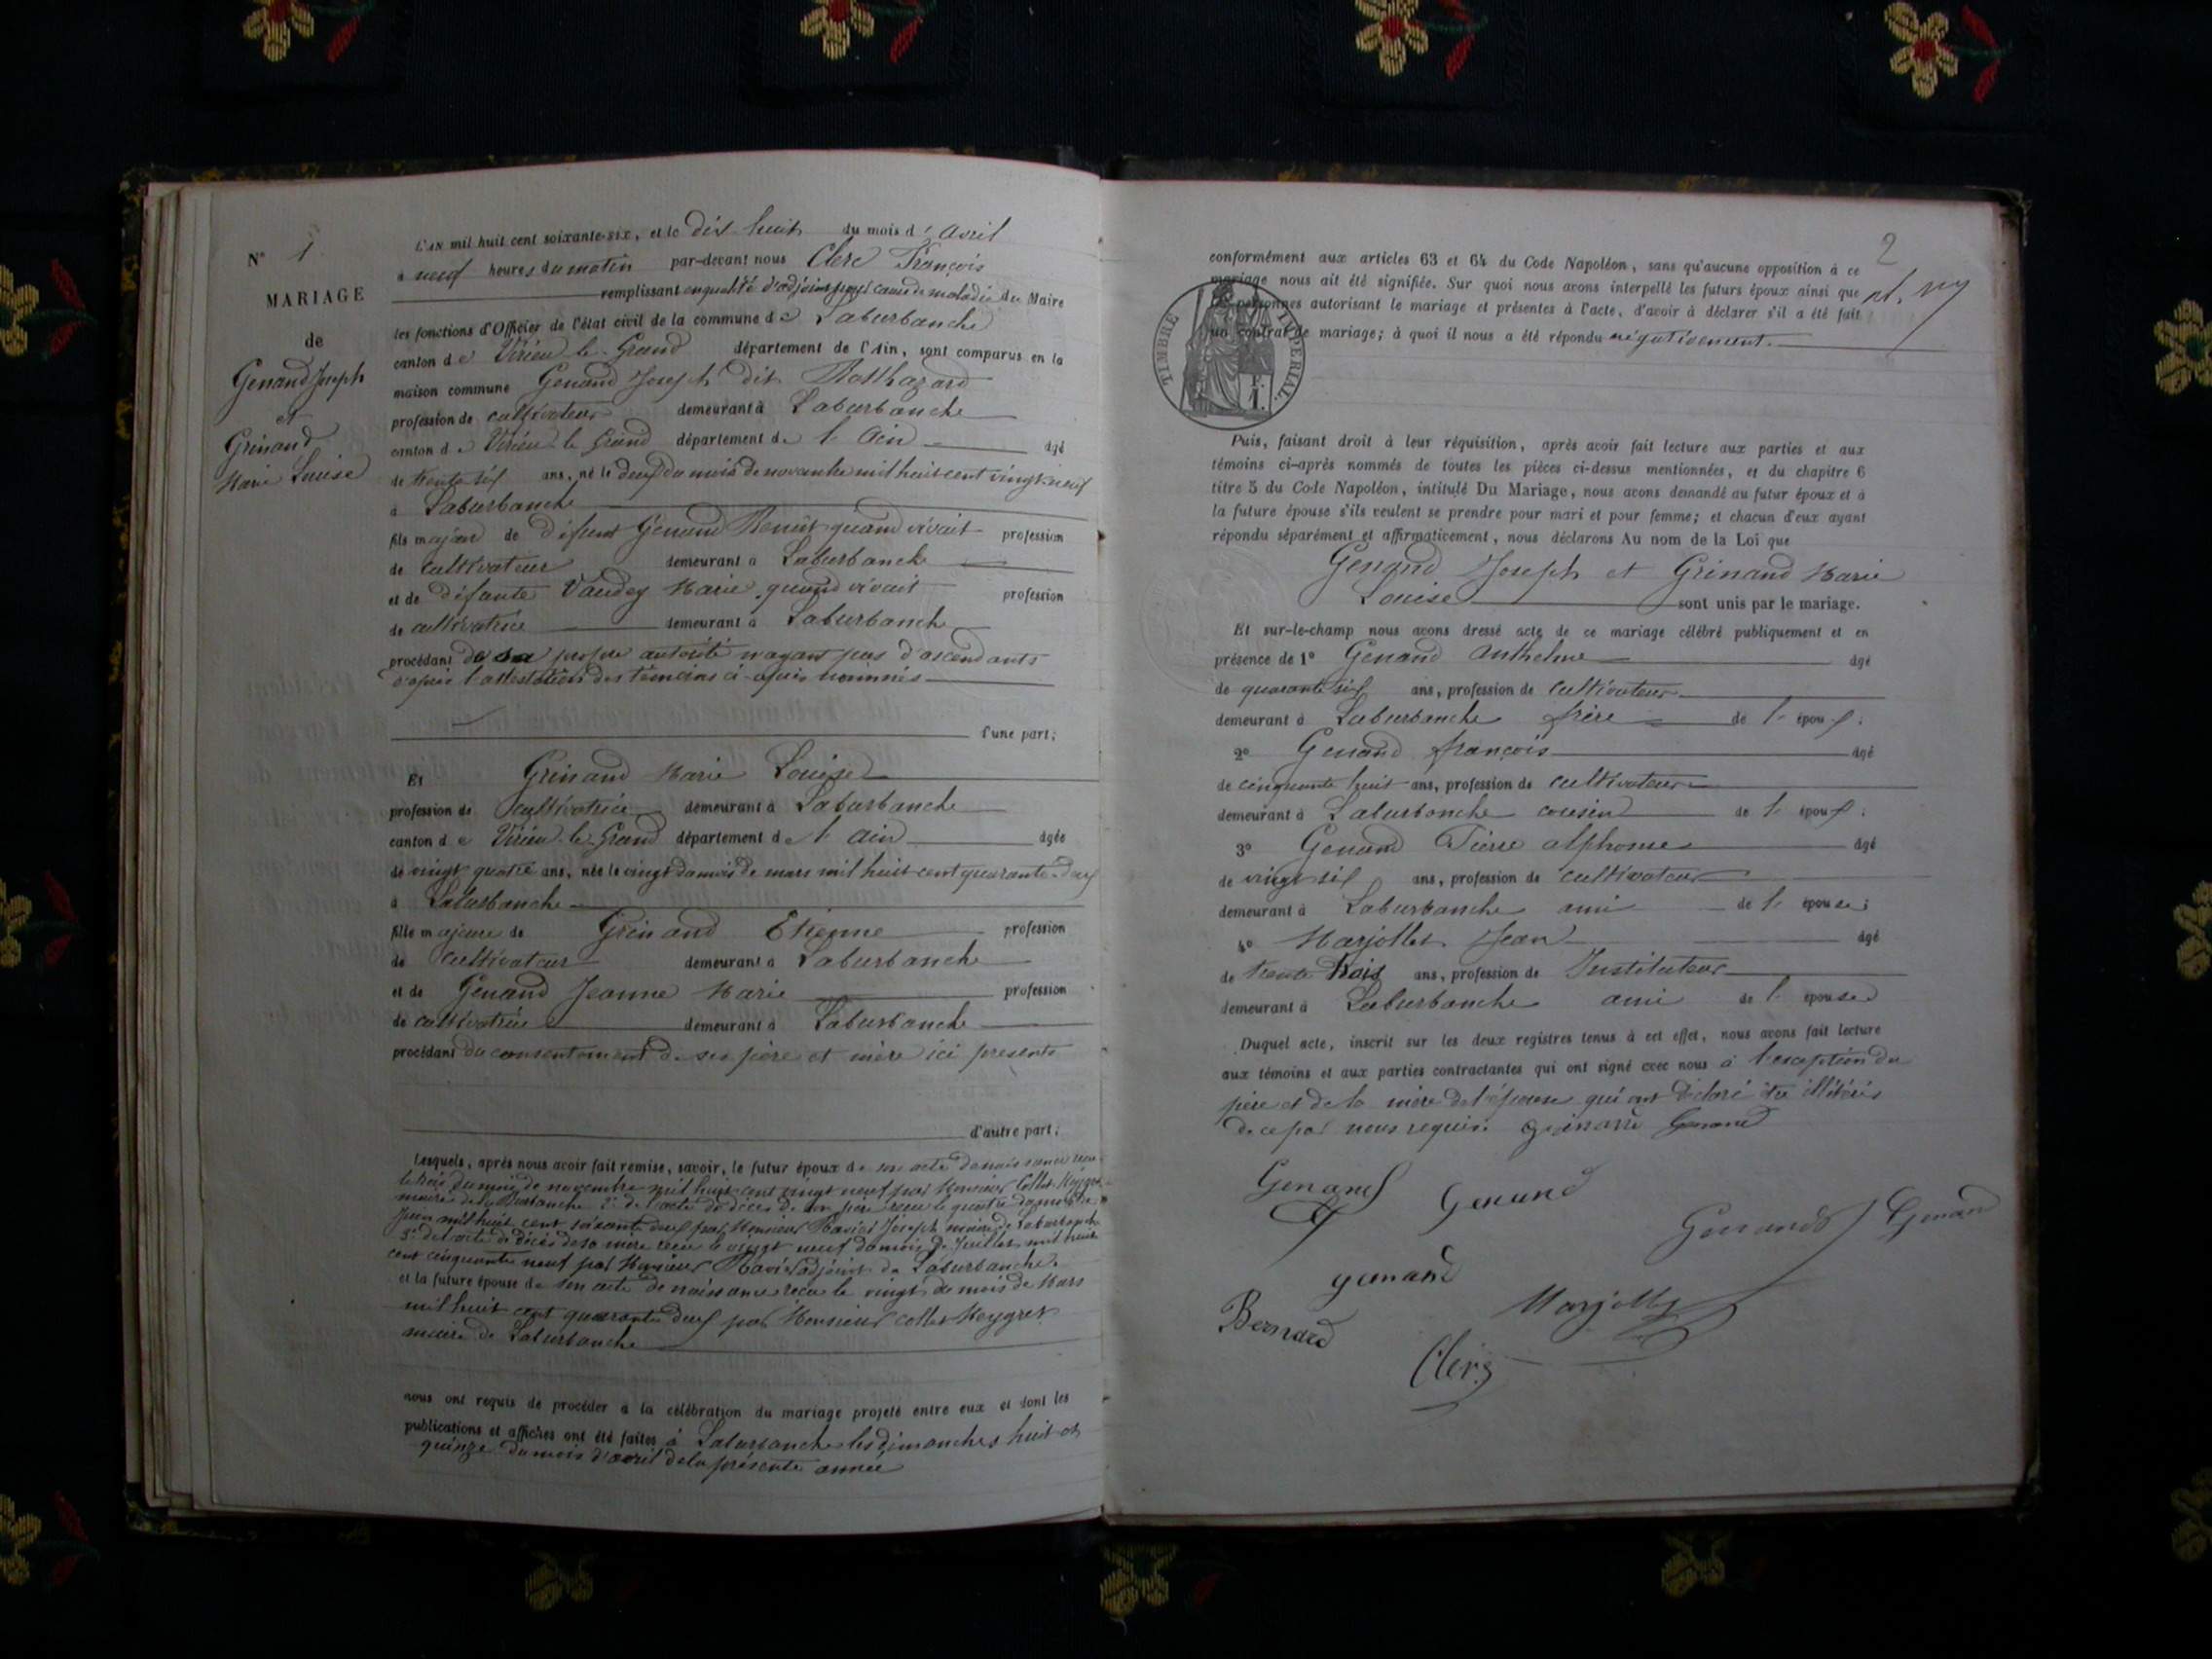 N° 1
MARIAGE
de
Genand Joseph
et
Grinand
Marie Louise
L'AN mil huit cent soixante-six, et le dix huit du mois d'avril
à neuf heures du matin par-devant nous Clerc François
remplissant en qualité d'adjoint pour cause de maladie du Maire
les fonctions d'Officier de l'état civil de la commune de Laburbanche
canton de Virieu le Grand département de l'Ain, sont comparus en la
maison commune Genand Joseph dit Balthazard
profession de cultivateur demeurant à Laburbanche
canton de Virieu le Grand département de l'Ain âgé
de trente six ans, né le deux du mois de novembre mil huit cent vingt neuf
à Laburbanche
fils majeur de défunt Genand Benoît quand vivait profession
de cultivateur demeurant à Laburbanche
et de défunte Vaudey Marie quand vivait profession
de cultivatrice demeurant à Laburbanche
procédant de sa propre autorité n'ayant pas d'ascendants
d'après l'attestation des témoins ci-après nommés
d'une part;
Et Grinand Marie Louise
profession de cultivatrice demeurant à Laburbanche
canton de Virieu le Grand département de l'Ain âgée
de vingt quatre ans, née le vingt du mois de mars mil huit cent quarante deux
à Laburbanche
fille majeure de Grinand Etienne profession
de cultivateur demeurant à Laburbanche
et de Genand Jeanne Marie profession
de cultivatrice demeurant à Laburbanche
procédant du consentement de ses père et mère ici présents
d'autre part;
Lesquels, après nous avoir fait remise, savoir, le futur époux de son acte de naissance reçu
le trois du mois de novembre mil huit cent vingt neuf par Monsieur Collet Meygret
maire de Laburbanche 2° de l'acte de décès de son père reçu le quatre du mois de
Juin mil huit cent soixante deux par Monsieur Joseph maire de Laburbanche
3° de l'acte de décès de sa mère reçu le vingt neuf du mois de Juillet mil huit
cent cinquante neuf par Monsieur adjoint de Laburbanche.
et la future épouse de son acte de naissance reçu le vingt du mois de Mars
mil huit cent quarante deux par Monsieur Collet Meygret
maire de Laburbanche
nous ont requis de procéder à la célébration du mariage projeté entre eux et dont les
publications et affiches ont été faites à Laburbanche les dimanches huit et
quinze du mois d'avril de la présente année
2
conformément aux articles 63 et 64 du Code Napoléon, sans qu'aucune opposition à ce
mariage nous ait été signifiée. Sur quoi nous avons interpellé les futurs époux ainsi que
les personnes autorisant le mariage et présentes à l'acte, d'avoir à déclarer s'il a été fait
un contrat de mariage; à quoi il nous a été répondu négativement.
TIMBRE IMPERIAL
Puis, faisant droit à leur réquisition, après avoir fait lecture aux parties et aux
témoins ci-après nommés de toutes les pièces ci-dessus mentionnées, et du chapitre 6
titre 5 du Code Napoléon, intitulé Du Mariage, nous avons demandé au futur époux et à
la future épouse s'ils veulent se prendre pour mari et pour femme; et chacun d'eux ayant
répondu séparément et affirmativement, nous déclarons Au nom de la Loi que
Genand Joseph et Grinand Marie
Louise sont unis par le mariage.
Et sur-le-champ nous avons dressé acte de ce mariage célébré publiquement et en
présence de 1° Genand Anthelme âgé
de quarante six ans, profession de cultivateur
demeurant à Laburbanche frère de l'époux;
2° Genand françois âgé
de cinquante huit ans, profession de cultivateur
demeurant à Laburbanche cousin de l'époux;
3° Genand Pierre alphonse âgé
de vingt six ans, profession de cultivateur
demeurant à Laburbanche ami de l'épouse;
4° Marjollet Jean âgé
de trente trois ans, profession de Instituteur
demeurant à Laburbanche ami de l'épouse
Duquel acte, inscrit sur les deux registres tenus à cet effet, nous avons fait lecture
aux témoins et aux parties contractantes qui ont signé avec nous à l'exception du
père et de la mère de l'épouse qui ont déclaré être illétérés
de ce par nous requis. grinand Genand
Genand Genand
Genand Genand
genand
Marjollet
Bernard
Clerc